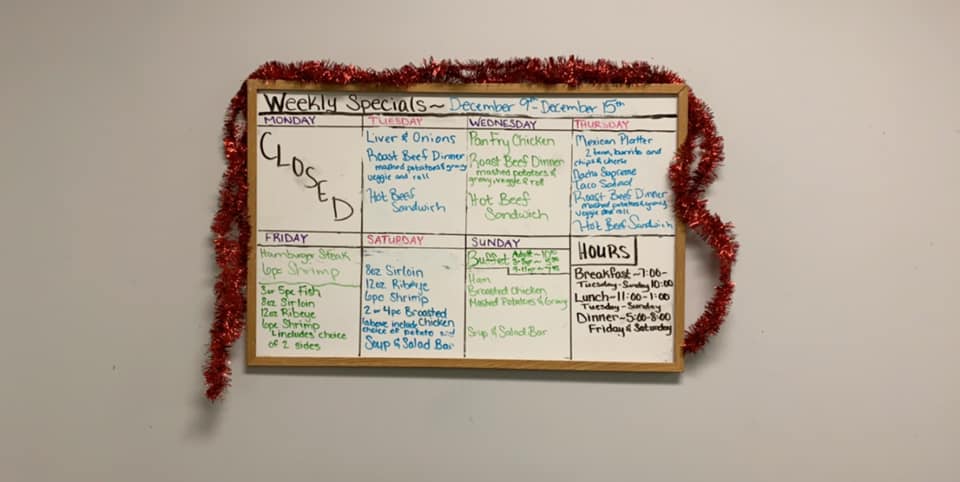 Weekly Specials~ December 9th-December 15th
MONDAY
CLOSED
TUESDAY
Liver & Onions
Roast Beef Dinner
mashed potatoes & gravy
veggie and roll
Hot Beef
Sandwich
WEDNESDAY
Pan Fry Chicken
Roast Beef Dinner
mashed potatoes &
gravy, veggie & roll
Hot Beef
Sandwich
THURSDAY
Mexican Platter
2 tacos, burrito and
chips & cheese
Nacho Supreme
Taco Salad
Roast Beef Dinner
mashed potatoes & gravy
veggie and roll
Hot Beef Sandwich
FRIDAY
Hamburger Steak
6pc Shrimp
3 or 5pc Fish
8oz Sirloin
12oz Ribeye
6pc Shrimp
includes choice
of 2 sides
SATURDAY
8oz Sirloin
12oz Ribeye
6pc Shrimp
2 or 4pc Broasted
Chicken
above include
choice of potato and
Soup & Salad Bar
SUNDAY
Buffet
Ham
Broasted Chicken
Mashed Potatoes & Gravy
Soup & Salad Bar
HOURS
Breakfast~7:00-
Tuesday-Sunday 10:00
Lunch~11:00-1:00
Tuesday-Sunday
Dinner~5:00-8:00
Friday & Saturday